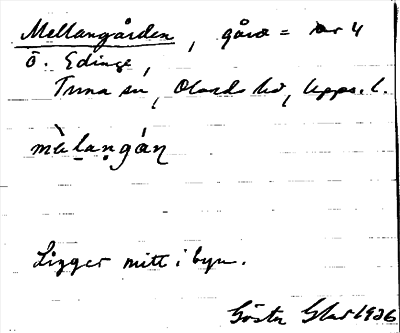 Mellangården, gård = nr 4
Ö. Edinge,
Tuna sn, Olands hd, Upps. l.
mèlangán
Ligger mitt i byn.
Gösta 1926